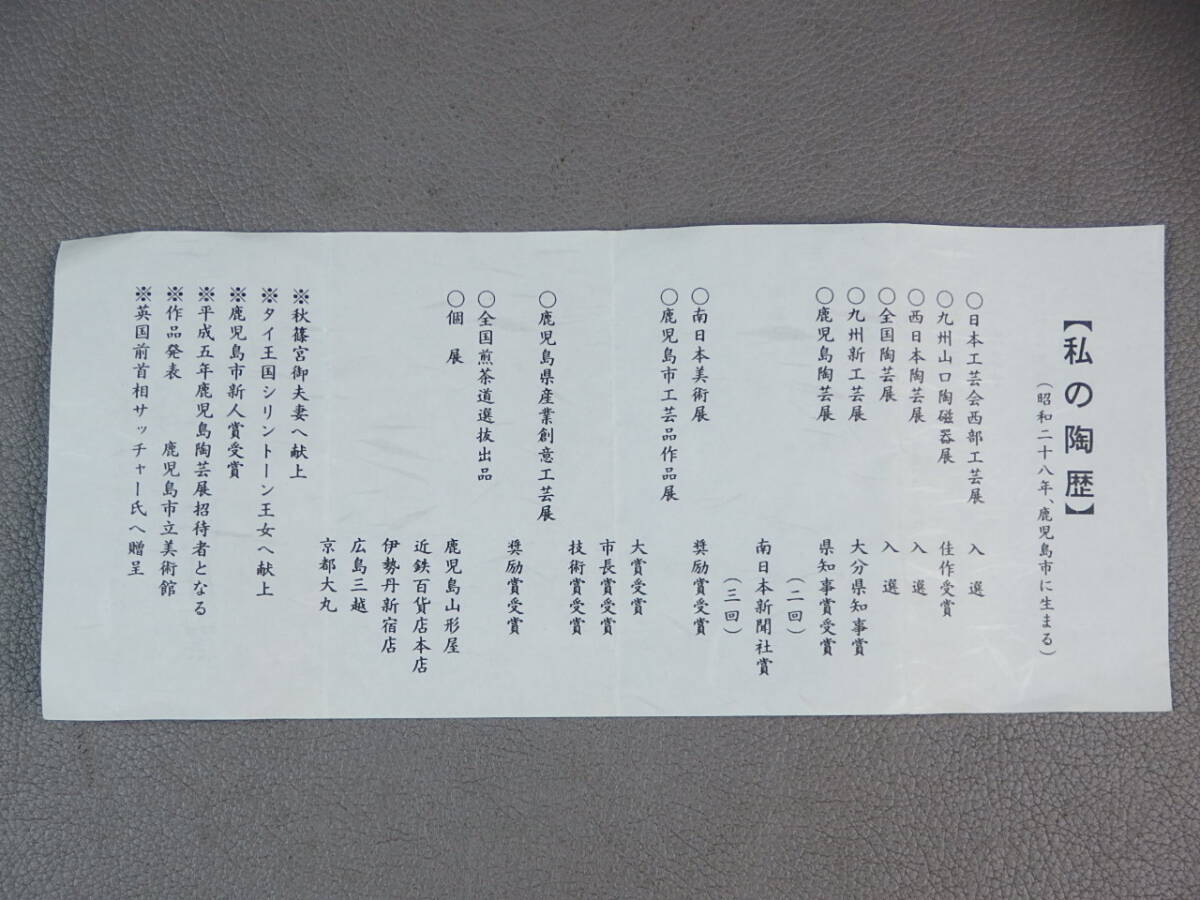 【私の陶歴】
（昭和二十八年、鹿児島市に生まる）
○日本工芸会西部工芸展　入選
○九州山口陶磁器展　佳作受賞
○西日本陶芸展　入選
○全国陶芸展　入選
○九州新工芸展　大分県知事賞
○鹿児島陶芸展　県知事賞受賞
（二回）
南日本新聞社賞
（三回）
○南日本美術展　奨励賞受賞
○鹿児島市工芸品作品展
大賞受賞
市長賞受賞
技術賞受賞
○鹿児島県産業創意工芸展
奨励賞受賞
○全国煎茶道選抜出品
○個展　鹿児島山形屋
近鉄百貨店本店
伊勢丹新宿店
広島三越
京都大丸
※秋篠宮御夫妻へ献上
※タイ王国シリントーン王女へ献上
※鹿児島市新人賞受賞
※平成五年鹿児島陶芸展招待者となる
※作品発表　鹿児島市立美術館
※英国前首相サッチャー氏へ贈呈